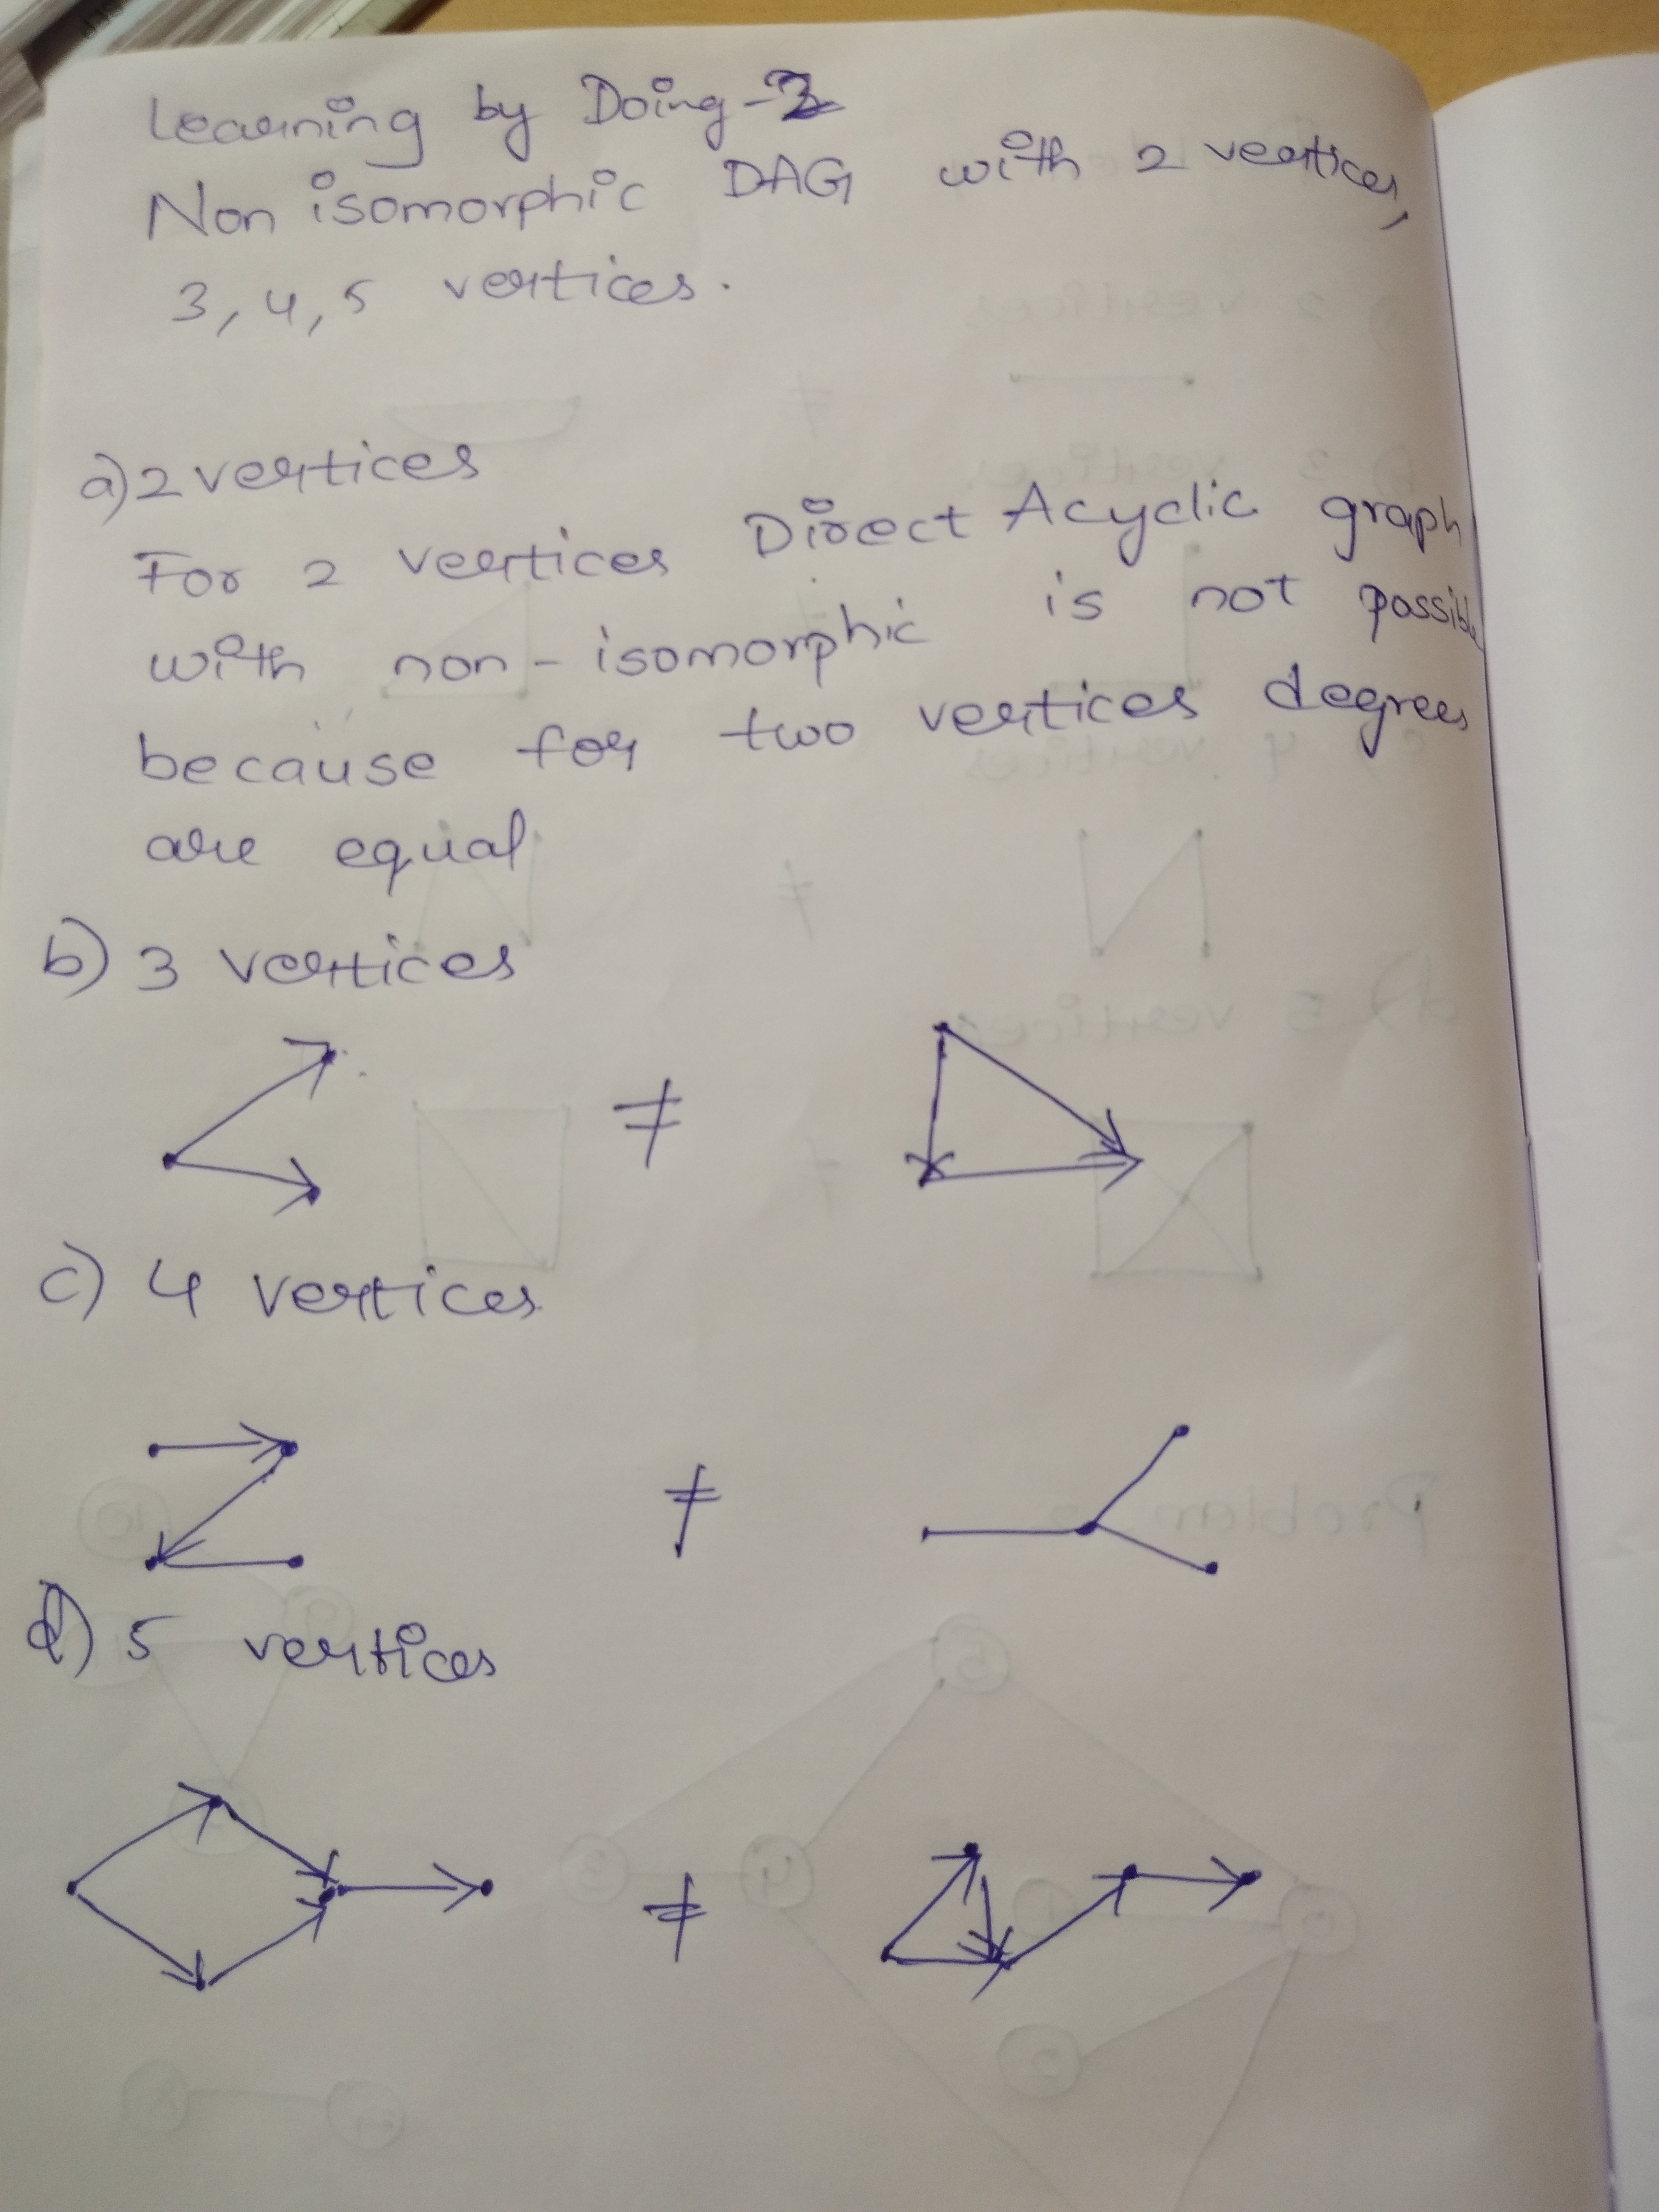 Learning by Doing-3
Non isomorphic DAG with 2 vertices,
3, 4, 5 vertices.
a) 2 vertices
For 2 vertices Direct Acyclic graph
with non-isomorphic is not possible
because for two vertices degrees
are equal
b) 3 vertices
≠
c) 4 vertices
≠
d) 5 vertices
≠